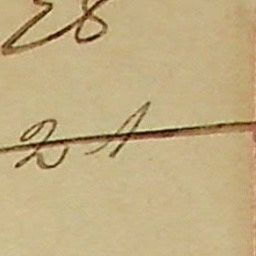 28
21